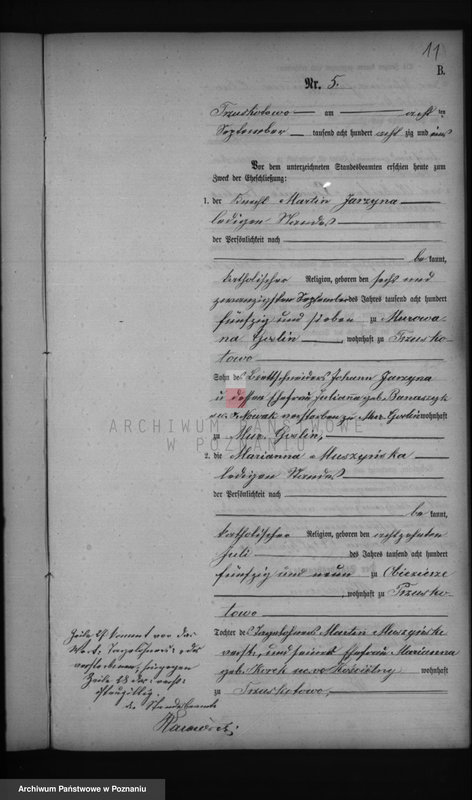 11
B.
Nr. 5.
Trzuskotowo am acht ten
September tausend acht hundert acht zig und eins
Vor dem unterzeichneten Standesbeamten erschien heute zum
Zweck der Eheschließung:
1. der Knecht Martin Jarzyna
ledigen Standes
der Persönlichkeit nach
be kannt,
katholischer Religion, geboren den sechs und
zwanzigsten September des Jahres tausend acht hundert
fünfzig und sieben zu Murowa-
na Goslin, wohnhaft zu Trzusko-
towo
Sohn des Brettschneiders Johann Jarzyna
u dessen Ehefrau Julianna geb. Banaszyk
Nowak verstorben zu Mur. Goslin wohnhaft
zu Mur. Goslin,
2. die Marianna Muszyńska
ledigen Standes
der Persönlichkeit nach
be kannt,
katholischer Religion, geboren den achtzehnten
Juli des Jahres tausend acht hundert
fünfzig und neun zu
, wohnhaft zu Trzusko-
towo
Tochter des Tagelöhners Martin Muszyński
und seiner Ehefrau Marianna
geb. wohnhaft
zu Trzuskotowo,
Zeile 27 kommt vor das
Wort Tagelöhners das
verstorbenen, hingegen
Zeile 28 das
ungültig.
der Standesbeamte
ARCHIWUM PAŃSTWOWE
W POZNANIU
Archiwum Państwowe w Poznaniu